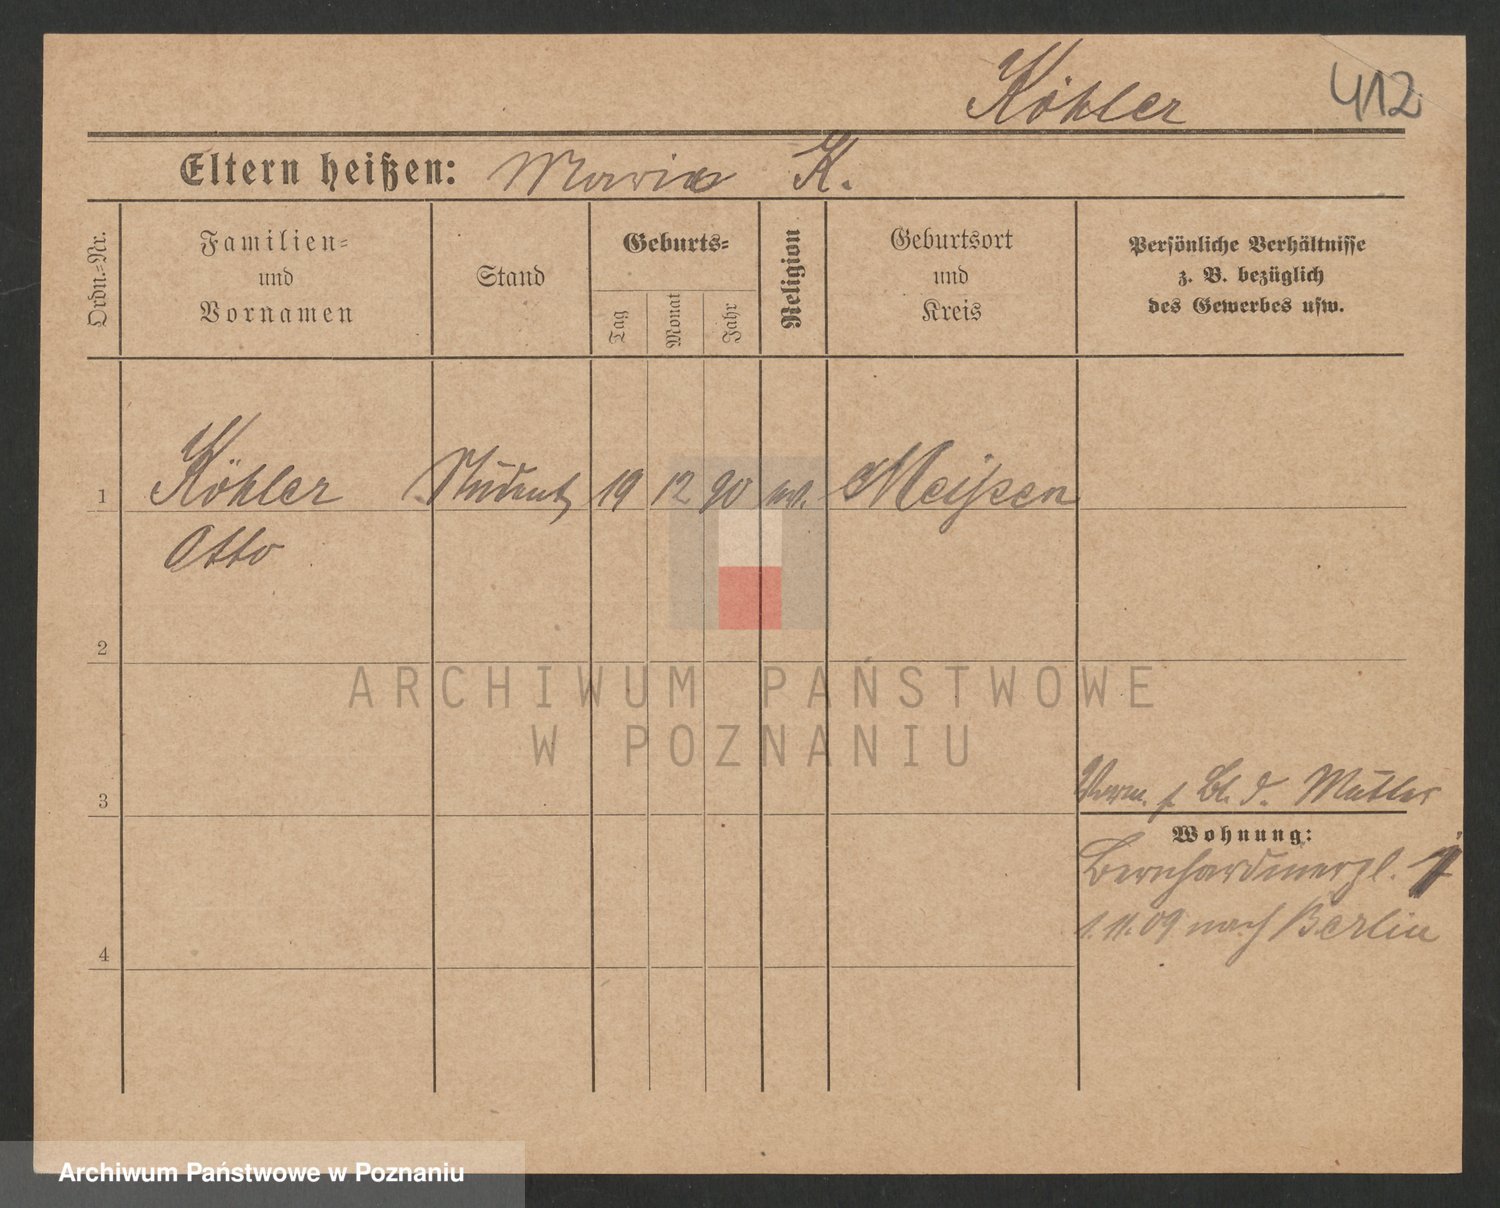 Köhler 412
Eltern heißen: Maria K.
Ordn.-Nr.
Familien-
und
Vornamen
Stand
Geburts-
Tag
Monat
Jahr
Religion
Geburtsort
und
Kreis
Persönliche Verhältnisse
z. B. bezüglich
des Gewerbes usw.
1 Köhler Student 19 12 90 ev. Meißen
Otto
2
ARCHIWUM PAŃSTWOWE
W POZNANIU
3
Verm. s. Bl. d. Mutter
Wohnung:
Bernhardinerpl.
1.11.09 nach Berlin
4
Archiwum Państwowe w Poznaniu